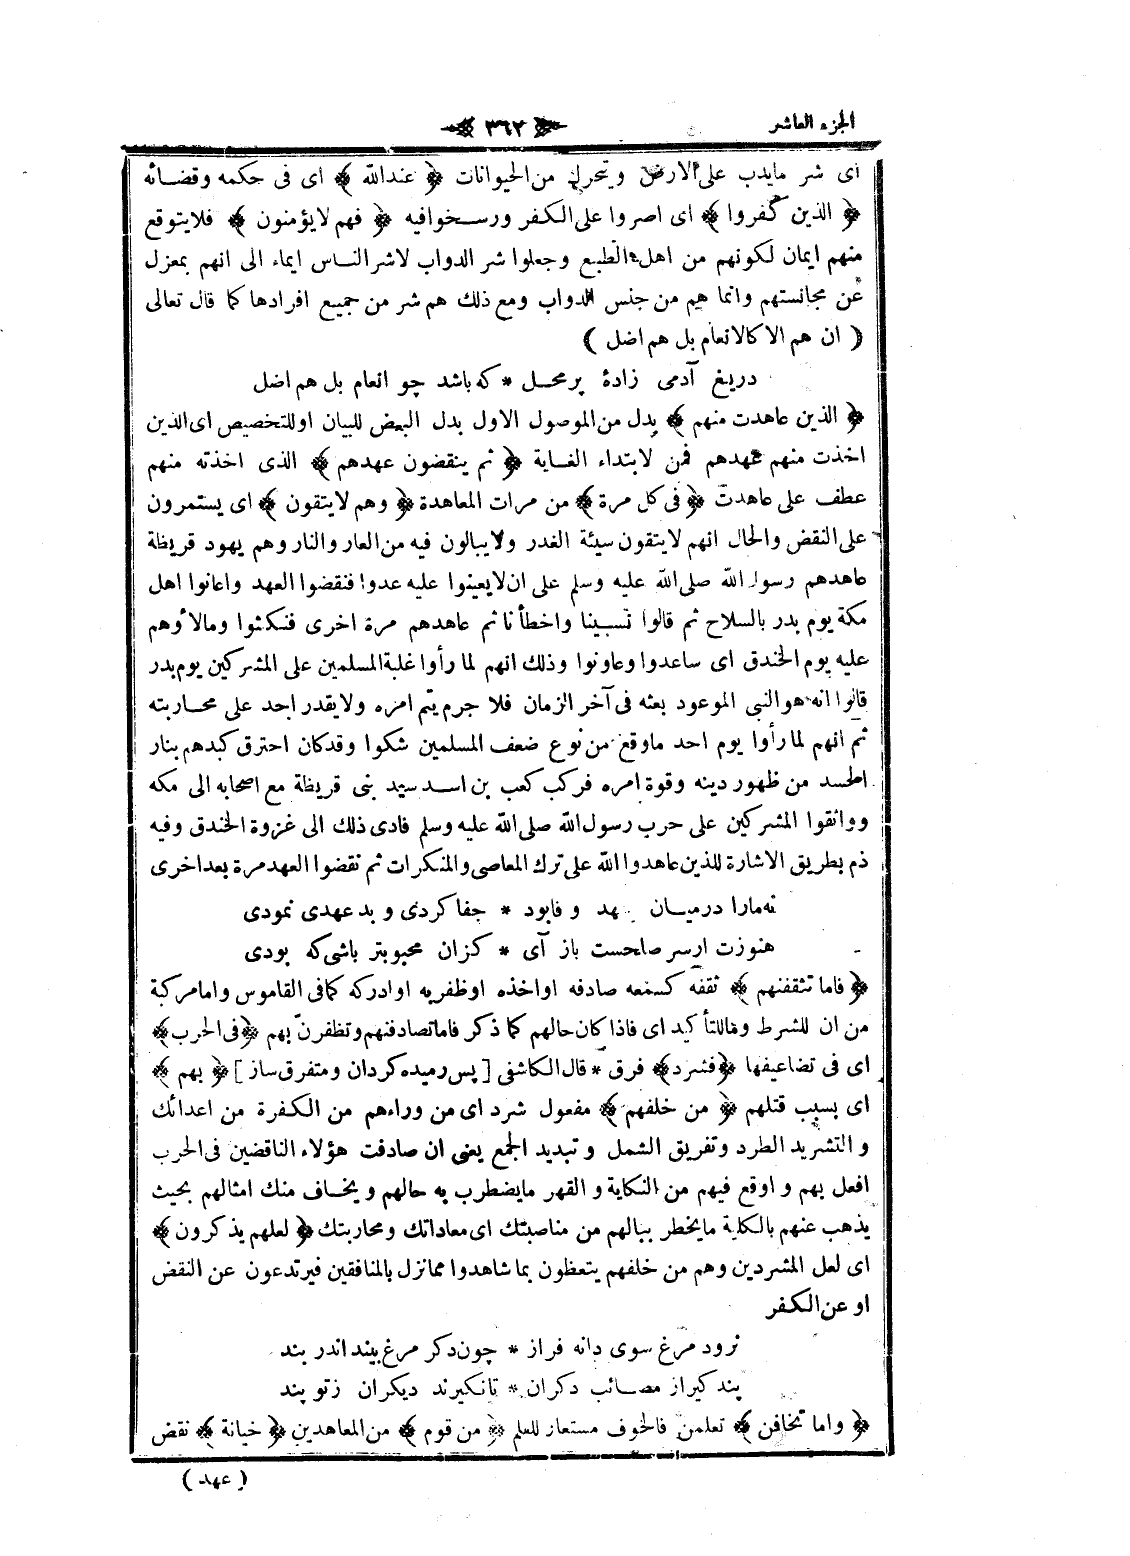 الجزء العاشر
٣٦٢
اى شر مايدب على الارض ويتحرك من الحيوانات ﴿ عندالله ﴾ اى فى حكمه وقضائه
﴿ الذين كفروا ﴾ اى اصروا على الكفر ورسخوافيه ﴿ فهم لايؤمنون ﴾ فلايتوقع
منهم ايمان لكونهم من اهل الطبع وجعلوا شر الدواب لاشر الناس ايماء الى انهم بمعزل
عن مجانستهم وانما هم من جنس الدواب ومع ذلك هم شر من جميع افرادها كما قال تعالى
( ان هم الا كالانعام بل هم اضل )
دريغ آدمى زادهٔ پر محل * كه باشد چو انعام بل هم اضل
﴿ الذين عاهدت منهم ﴾ بدل من الموصول الاول بدل البعض للبيان اوللتخصيص اى الذين
اخذت منهم عهدهم فمن لابتداء الغاية ﴿ ثم ينقضون عهدهم ﴾ الذى اخذته منهم
عطف على عاهدت ﴿ فى كل مرة ﴾ من مرات المعاهدة ﴿ وهم لايتقون ﴾ اى يستمرون
على النقض والحال انهم لايتقون سيئة الغدر ولايبالون فيه من العار والنار وهم يهود قريظة
عاهدهم رسول الله صلى الله عليه وسلم على ان لايعينوا عليه عدوا فنقضوا العهد واعانوا اهل
مكة يوم بدر بالسلاح ثم قالوا نسينا واخطأنا ثم عاهدهم مرة اخرى فنكثوا ومالأوهم
عليه يوم الخندق اى ساعدوا وعاونوا وذلك انهم لما رأوا غلبة المسلمين على المشركين يوم بدر
قالوا انه هو النبى الموعود بعثه فى آخر الزمان فلا جرم يتم امره ولايقدر احد على محاربته
ثم انهم لما رأوا يوم احد ماوقع من نوع ضعف المسلمين شكوا وقدكان احترق كبدهم بنار
الحسد من ظهور دينه وقوة امره فركب كعب بن اسد سيد بنى قريظة مع اصحابه الى مكه
وواثقوا المشركين على حرب رسول الله صلى الله عليه وسلم فادى ذلك الى غزوة الخندق وفيه
ذم بطريق الاشارة للذين عاهدوا الله على ترك المعاصى والمنكرات ثم نقضوا العهد مرة بعد اخرى
نه مارا درميان عهد و فابود * جفا كردى و بد عهدى نمودى
هنوزت ارسر صلحست باز آى * كزان محبوبتر باشى كه بودى
﴿ فاما تثقفنهم ﴾ ثقفه كسمعه صادفه اواخذه اوظفر به اوادركه كمافى القاموس واما مركبة
من ان للشرط وماللتأكيد اى فاذا كان حالهم كما ذكر فاما تصادفنهم وتظفرن بهم ﴿ فى الحرب ﴾
اى فى تضاعيفها ﴿ فشرد ﴾ فرق * قال الكاشفى [ پس رميده كردان ومتفرق ساز ] ﴿ بهم ﴾
اى بسبب قتلهم ﴿ من خلفهم ﴾ مفعول شرد اى من وراءهم من الكفرة من اعدائك
و التشريد الطرد وتفريق الشمل و تبديد الجمع يعنى ان صادفت هؤلاء الناقضين فى الحرب
افعل بهم و اوقع فيهم من النكاية و القهر مايضطرب به حالهم و يخاف منك امثالهم بحيث
يذهب عنهم بالكلية مايخطر ببالهم من مناصبتك اى معاداتك ومحاربتك ﴿ لعلهم يذكرون ﴾
اى لعل المشردين وهم من خلفهم يتعظون بما شاهدوا ممانزل بالمنافقين فيرتدعون عن النقض
او عن الكفر
نرود مرغ سوى دانه فراز * چون دكر مرغ بيند اندر بند
پند كير از مصائب دكران * تا نكيرند ديكران زتو پند
﴿ واما تخافن ﴾ تعلمن فالخوف مستعار للعلم ﴿ من قوم ﴾ من المعاهدين ﴿ خيانة ﴾ نقض
( عهد )